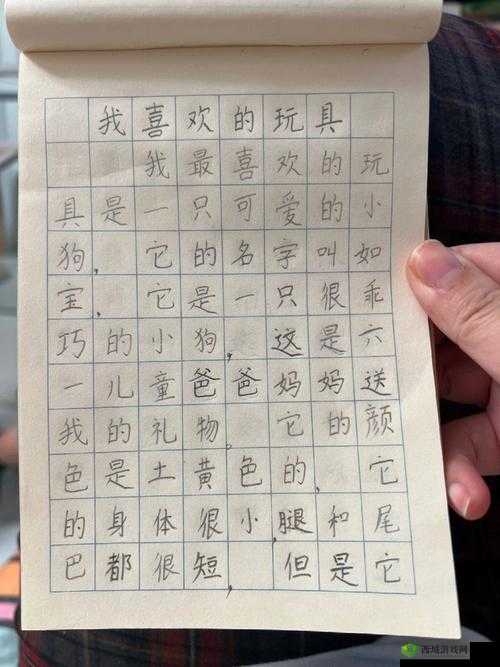 我喜欢的玩具
我最喜欢的玩
具是一只可爱的小
狗，它的名字叫如
宝，它是一只很乖
巧的小狗，这是六
一儿童爸爸妈妈送
我的礼物。它的颜
色是土黄色的，它
的身体很小，腿和尾
巴都很短，但是它
西域游戏网